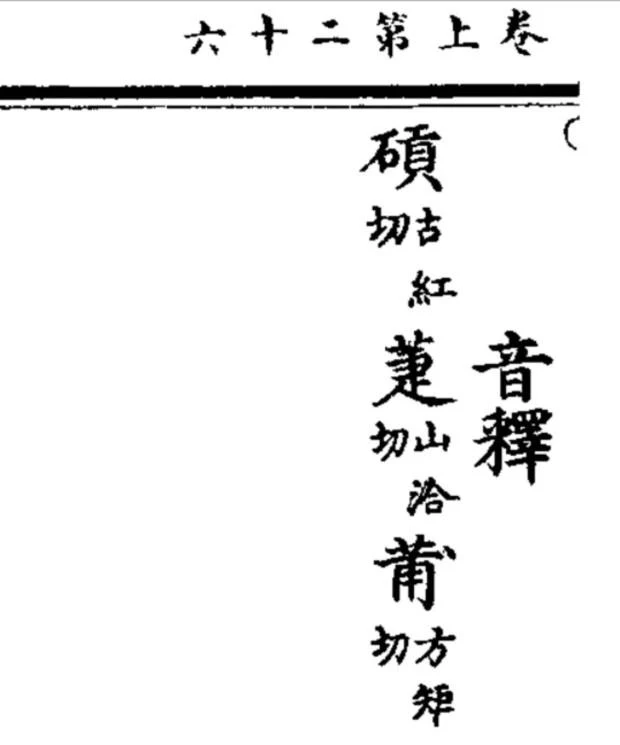 卷上第二十六
音釋
碽古紅切萐山洽切莆方矩切